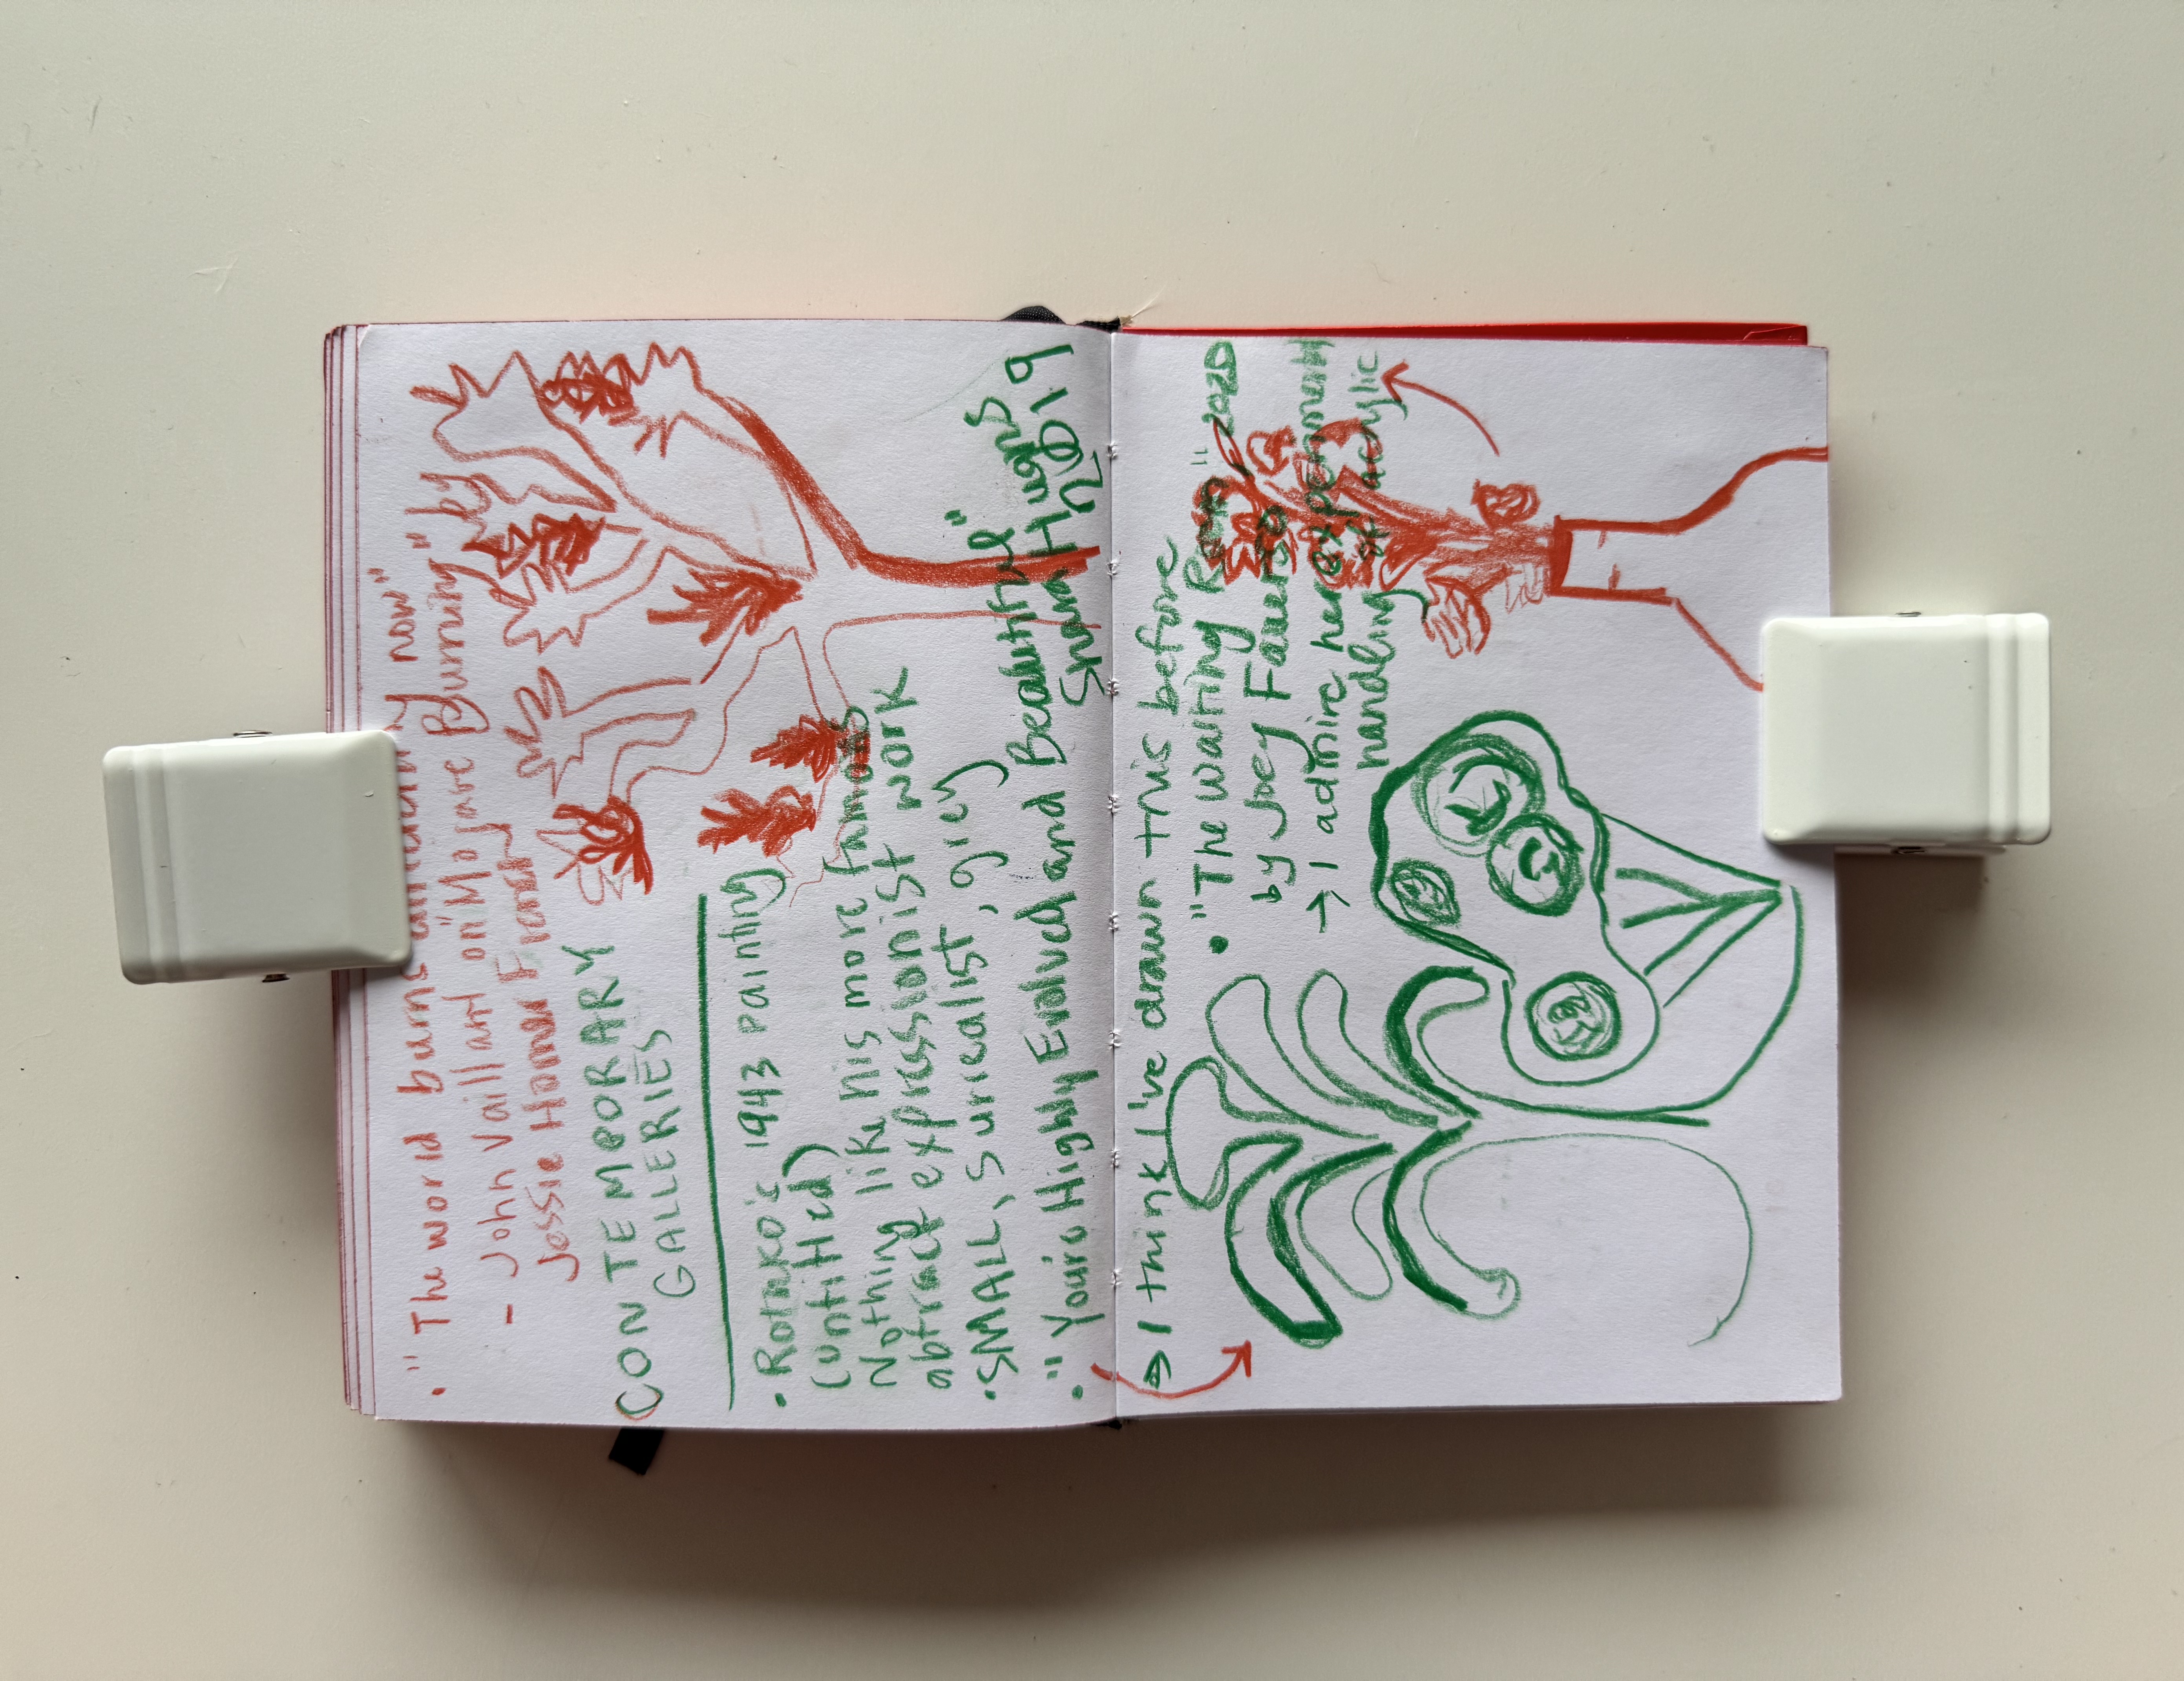 • "The world burns differently now"
- John Vaillant on "Mojave Burning" by
Jessie Homer French
CONTEMPORARY
GALLERIES
• Rothko's 1943 painting
(untitled)
Nothing like his more famous
abtract expressionist work
• SMALL, surrealist, grey
• "You're Highly Evolved and Beautiful"
Shara Hughes
2019
→ I think I've drawn this before
• "The Waiting Room" 2020
by Joey
→ I admire her experiment
handling of acrylic